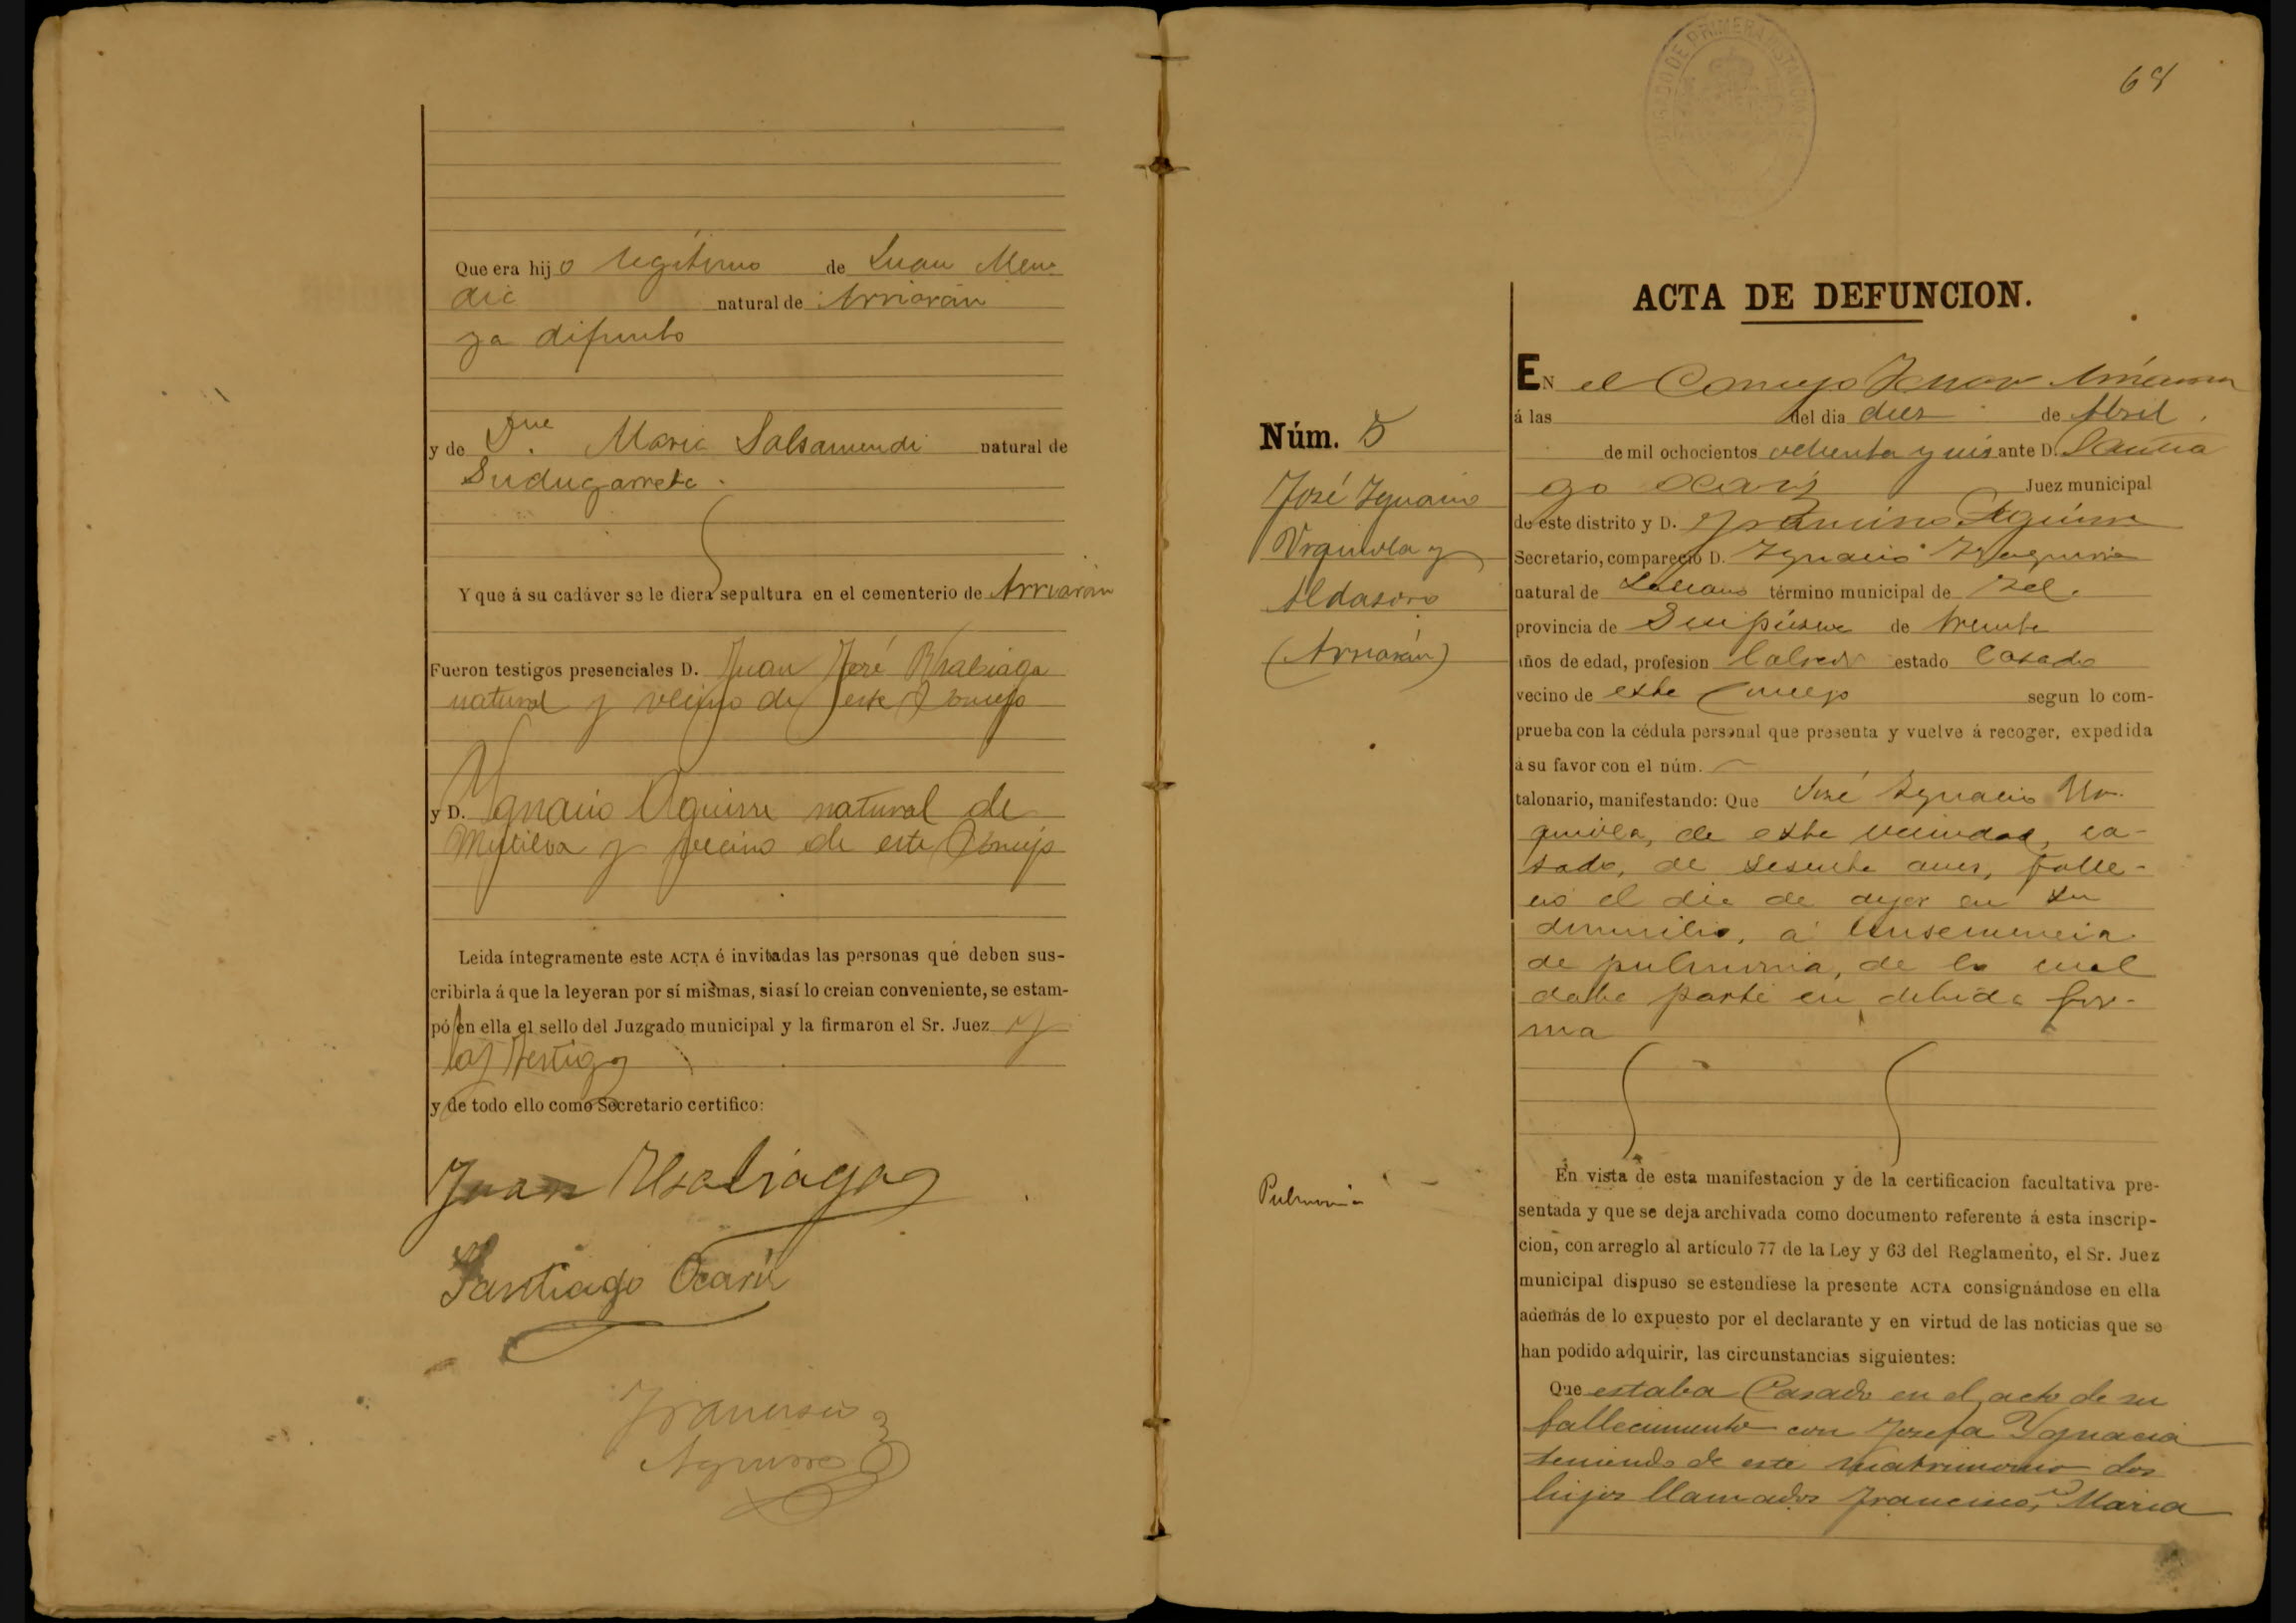 Que era hijo legítimo de Juan Men-
dia natural de Arriarán
ya difunto
y de Dña. Maria Salsamendi natural de
Gudugarreta.
Y que á su cadáver se le diera sepultura en el cementerio de Arriarán
Fueron testigos presenciales D. Juan José
natural y vecino de este Concejo
y D. Ygnacio Aguirre natural de
Mutiloa y vecino de este Concejo
Leida íntegramente este ACTA é invitadas las personas que deben sus-
cribirla á que la leyeran por sí mismas, si así lo creian conveniente, se estam-
pó en ella el sello del Juzgado municipal y la firmaron el Sr. Juez y
los testigos
y de todo ello como Secretario certifico:
Juan
Santiago Ocariz
Francisco
Aguirre
JUZGADO DE PRIMERA INSTANCIA
68
ACTA DE DEFUNCION.
EN el Concejo
á las del dia diez de Abril
de mil ochocientos ochenta y seis ante D. Santia
go Ocariz Juez municipal
de este distrito y D. Francisco Aguirre
Secretario, compareció D. Ygnacio
natural de Lazcano término municipal de Id.
provincia de Guipúzcoa de treinta
años de edad, profesion labrador estado Casado
vecino de este Concejo segun lo com-
prueba con la cédula personal que presenta y vuelve á recoger, expedida
á su favor con el núm.
talonario, manifestando: Que José Ygnacio Ur-
quiola, de esta vecindad, ca-
sado, de sesenta años, falle-
ció el dia de ayer en su
domicilio, á consecuencia
de pulmonia, de lo cual
daba parte en debida for-
ma
Núm. 5
José Ygnacio
Urquiola y
Aldasoro
(Arriarán)
Pulmonia
En vista de esta manifestacion y de la certificacion facultativa pre-
sentada y que se deja archivada como documento referente á esta inscrip-
cion, con arreglo al artículo 77 de la Ley y 63 del Reglamento, el Sr. Juez
municipal dispuso se estendiese la presente ACTA consignándose en ella
además de lo expuesto por el declarante y en virtud de las noticias que se
han podido adquirir, las circunstancias siguientes:
Que estaba Casado en el acto de su
fallecimiento con Josefa Ygnacia
teniendo de este matrimonio dos
hijos llamados Francisco, y Maria